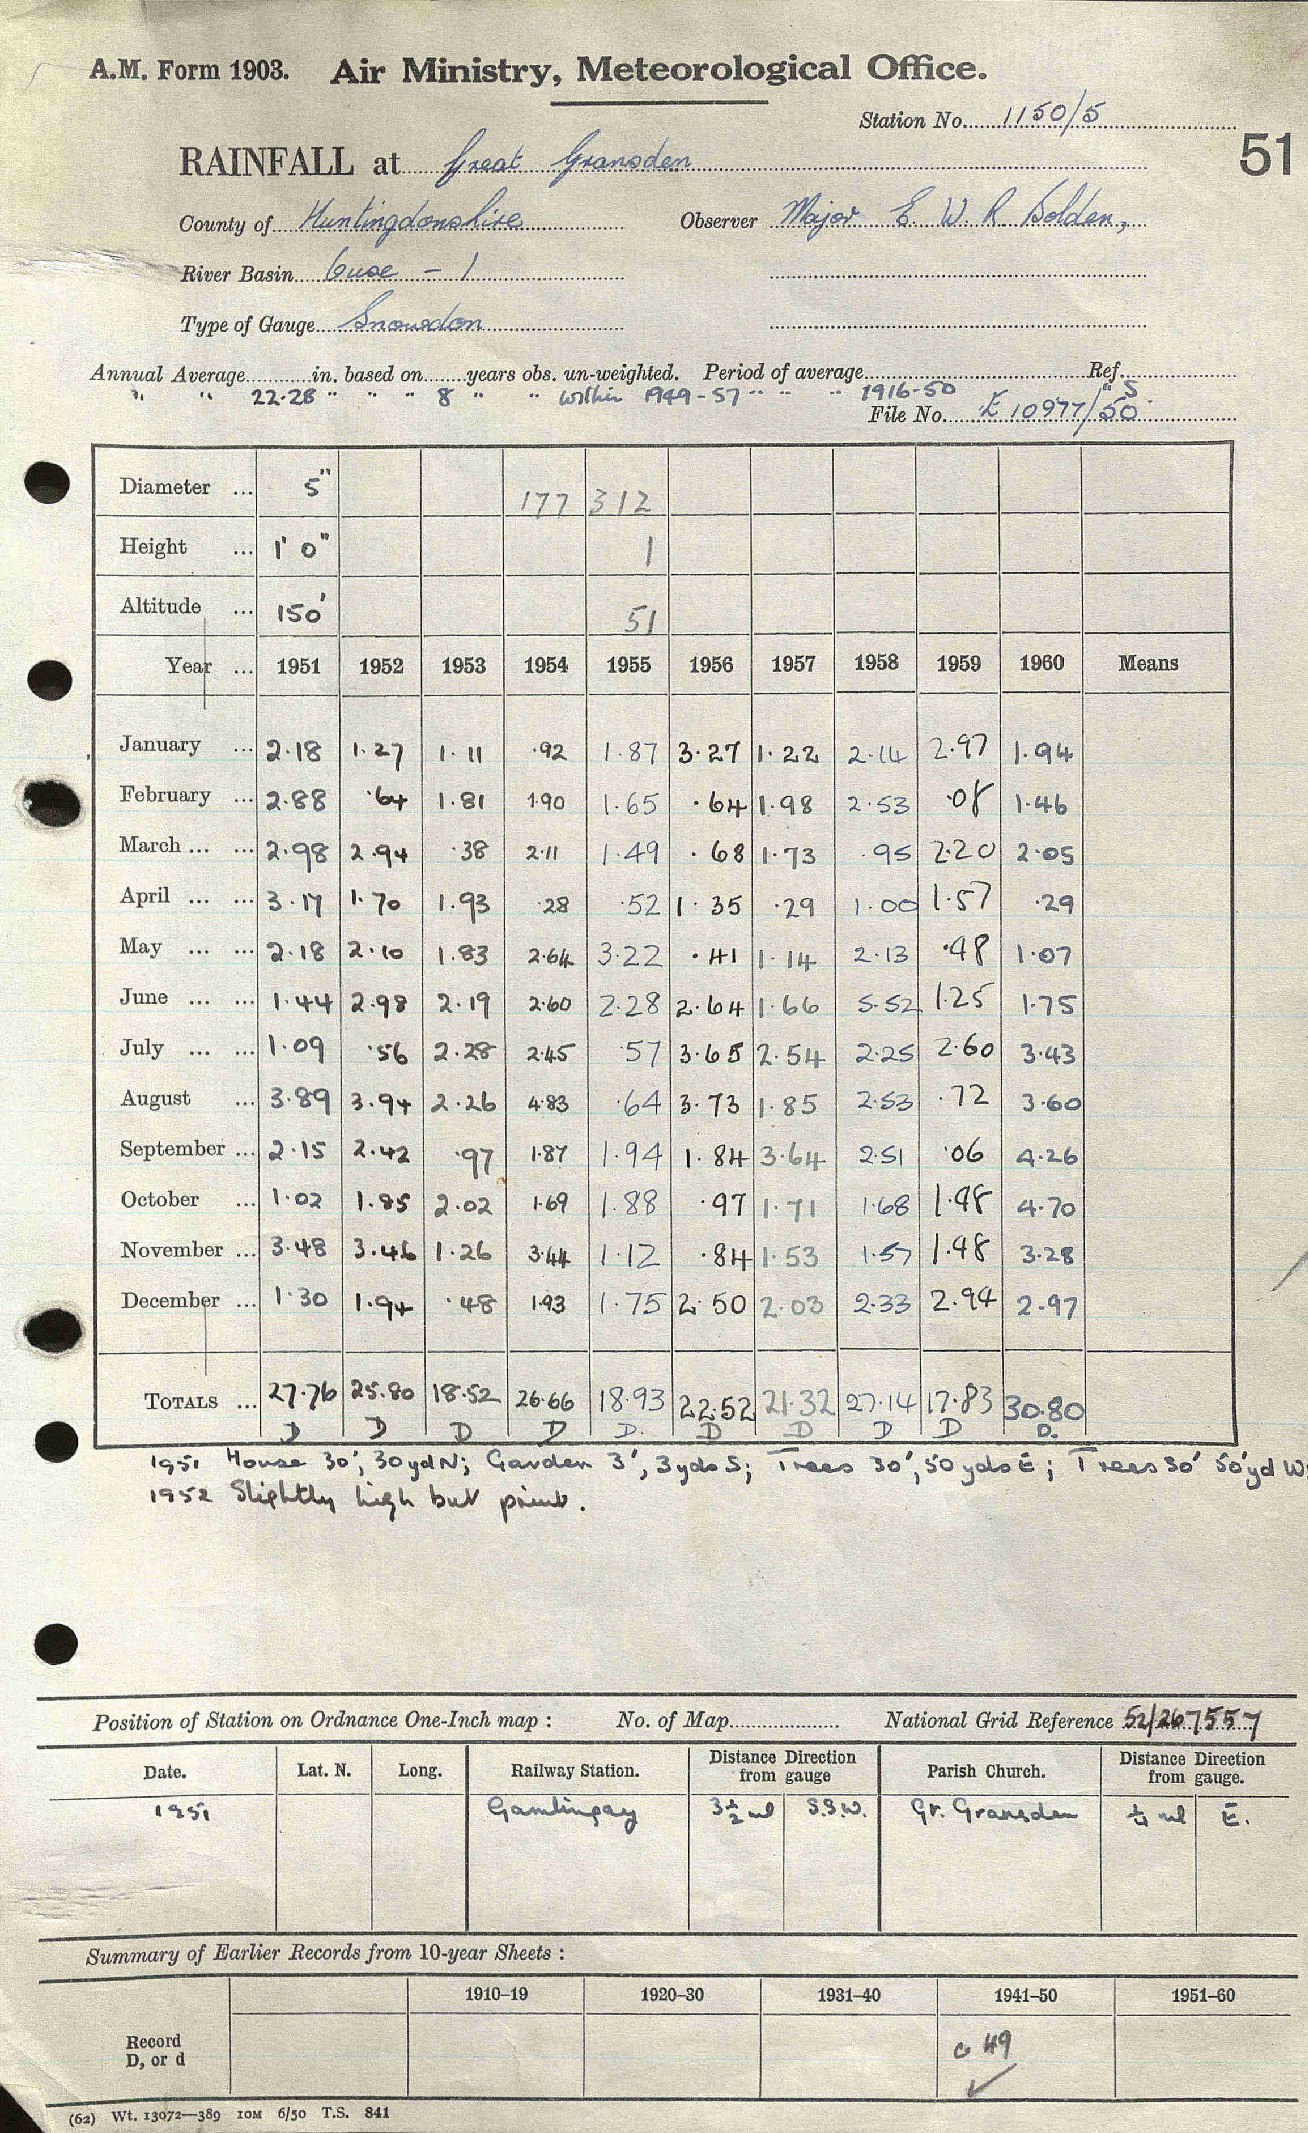 A.M. Form 1903. Air Ministry, Meteorological Office.
Station No. 1150/5
51
RAINFALL at Great Gransden
County of Huntingdonshire Observer Major E. W. R. Bolden,
River Basin Ouse – 1
Type of Gauge Snowdon
Annual Average............in. based on........years obs. un-weighted. Period of average.................Ref.
" " 22.28 " " " 8 " " within 1949-57 " " " 1916-50 "S
File No. E 10977/50
Diameter ... 5" 177 312
Height ... 1' 0" 1
Altitude ... 150' 51
Year ... 1951 1952 1953 1954 1955 1956 1957 1958 1959 1960 Means
January ... 2.18 1.27 1.11 .92 1.87 3.27 1.22 2.14 2.97 1.94
February ... 2.88 .64 1.81 1.90 1.65 .64 1.98 2.53 .08 1.46
March ... ... 2.98 2.94 .38 2.11 1.49 .68 1.73 .95 2.20 2.05
April ... ... 3.17 1.70 1.93 .28 .52 1.35 .29 1.00 1.57 .29
May ... ... 2.18 2.10 1.83 2.64 3.22 .41 1.14 2.13 .48 1.07
June ... ... 1.44 2.98 2.19 2.60 2.28 2.64 1.66 5.52 1.25 1.75
July ... ... 1.09 .56 2.28 2.45 .57 3.65 2.54 2.25 2.60 3.43
August ... 3.89 3.94 2.26 4.83 .64 3.73 1.85 2.53 .72 3.60
September ... 2.15 2.42 .97 1.87 1.94 1.84 3.64 2.51 .06 4.26
October ... 1.02 1.85 2.02 1.69 1.88 .97 1.71 1.68 1.48 4.70
November ... 3.48 3.46 1.26 3.44 1.12 .84 1.53 1.57 1.48 3.28
December ... 1.30 1.94 .48 1.93 1.75 2.50 2.03 2.33 2.94 2.97
TOTALS ... 27.76 25.80 18.52 26.66 18.93 22.52 21.32 27.14 17.83 30.80
D D D D D. D D D D D.
1951 House 30', 30yd N; Garden 3', 3yds S; Trees 30', 50 yds E; Trees 50' 50'yd W;
1952 Slightly high but print.
Position of Station on Ordnance One-Inch map : No. of Map.................... National Grid Reference 52/267557
Date. Lat. N. Long. Railway Station. Distance Direction from gauge Parish Church. Distance Direction from gauge.
1951 Gamlingay 3½ ml S.S.W. Gt. Gransden ¼ ml E.
Summary of Earlier Records from 10-year Sheets :
1910–19 1920–30 1931–40 1941–50 1951–60
Record
D, or d
c 49 ✓
(62) Wt. 13072—389 10M 6/50 T.S. 841